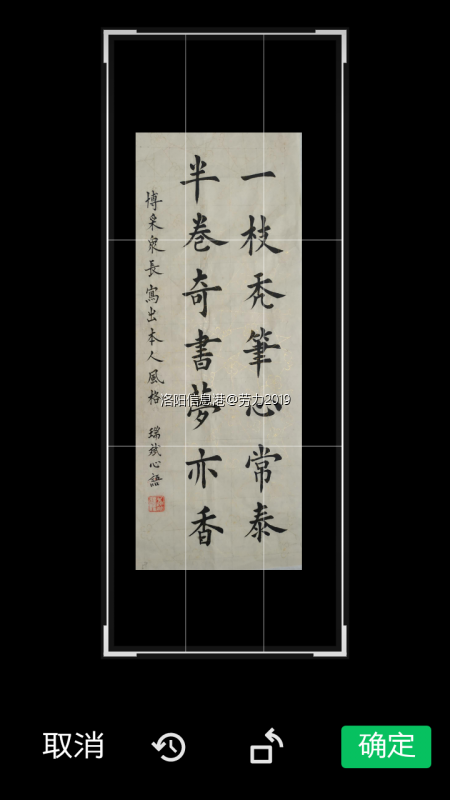 一枝秃筆心常泰
半卷奇書夢亦香
博采众長寫出本人風格
瑞斌心語
洛阳信息港@劳力2019
取消
确定